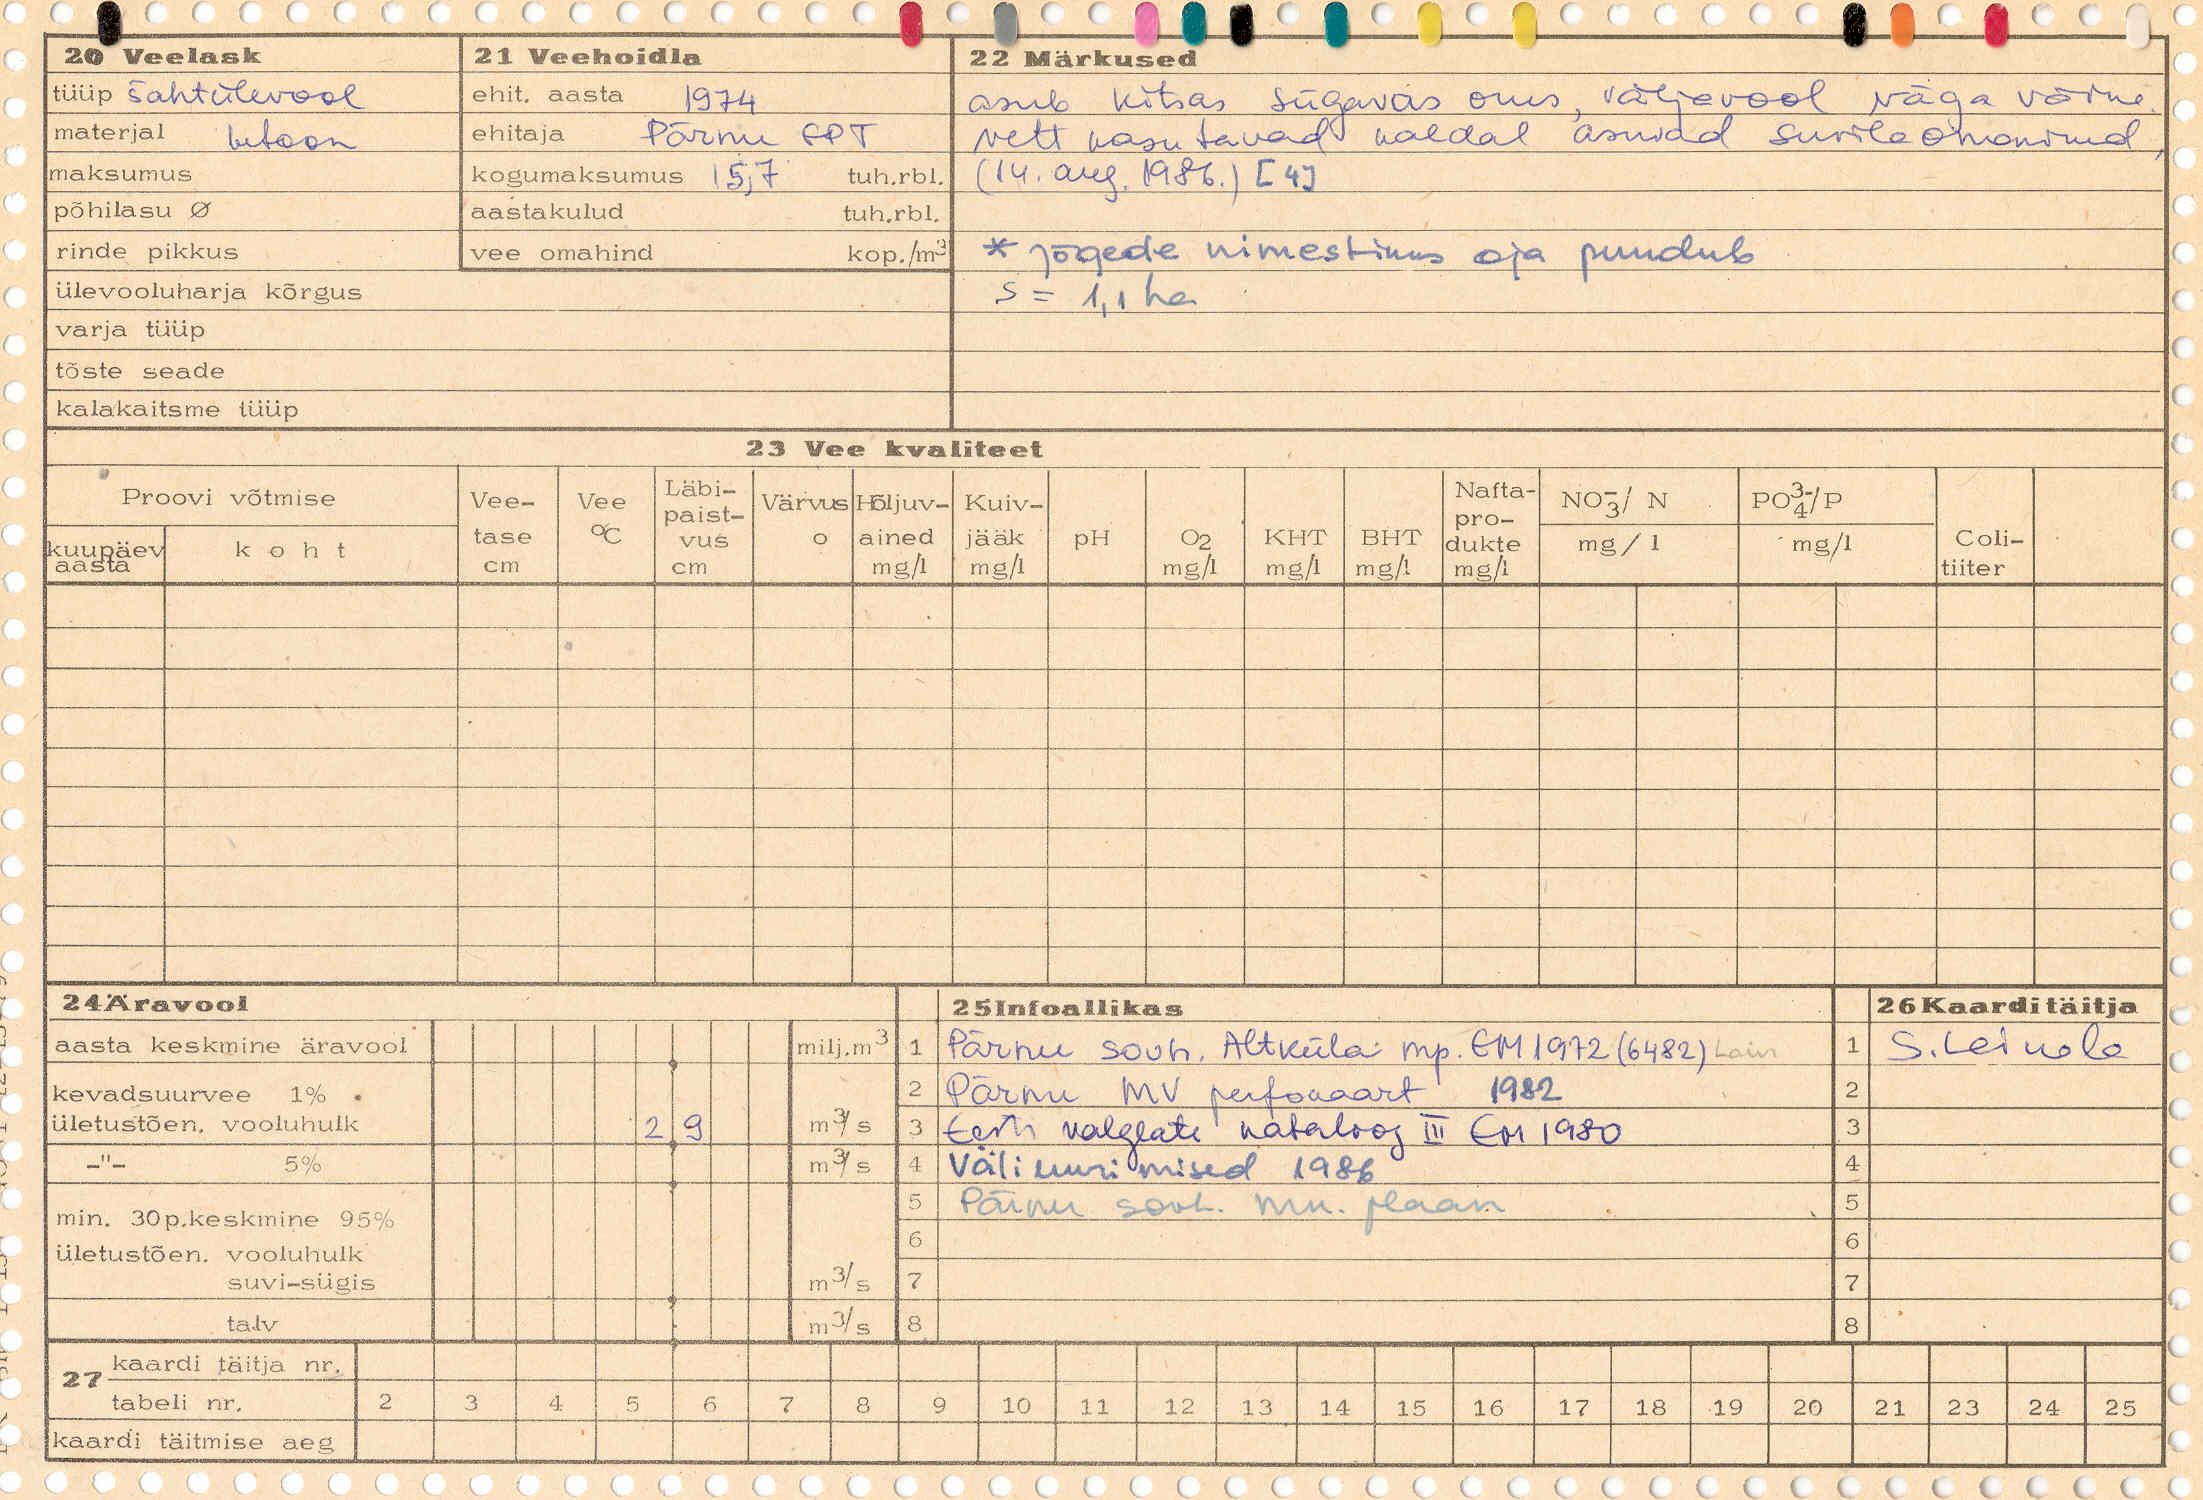 20 Veelask
tüüp šahtülevool
materjal betoon
maksumus
põhilasu Ø
rinde pikkus
ülevooluharja kõrgus
varja tüüp
tõste seade
kalakaitsme tüüp
21 Veehoidla
ehit. aasta 1974
ehitaja Pärnu EPT
kogumaksumus 15,7 tuh.rbl.
aastakulud tuh.rbl.
vee omahind kop./m³
22 Märkused
asub kitsas sügavas orus, väljavool väga väike.
vett kasutavad kaldal asuvad suvilaomanikud,
(14. aug. 1986.) [4]
* jõgede nimestikus oja puudub
S = 1,1 ha
23 Vee kvaliteet
Proovi võtmise
kuupäev aasta
koht
Vee-tase cm
Vee °C
Läbi-paist-vus cm
Värvus o
Hõljuv-ained mg/l
Kuiv-jääk mg/l
pH
O₂ mg/l
KHT mg/l
BHT mg/l
Nafta-pro-dukte mg/l
NO₃⁻/ N mg/l
PO₄³⁻/P mg/l
Coli-tiiter
24 Äravool
aasta keskmine äravool milj.m³
kevadsuurvee 1%
ületustõen. vooluhulk 2 9 m³/s
-"- 5% m³/s
min. 30p.keskmine 95%
ületustõen. vooluhulk
suvi-sügis m³/s
talv m³/s
25 Infoallikas
1 Pärnu sovh. Altküla mp. EM 1972 (6482)
2 Pärnu MV perfokaart 1982
3 Eesti valglate kataloog III EM 1980
4 Väliuurimised 1986
5 Pärnu sovh. mk. plaan
6
7
8
26 Kaardi täitja
1 S. Leinola
2
3
4
5
6
7
8
27 kaardi täitja nr.
tabeli nr. 2 3 4 5 6 7 8 9 10 11 12 13 14 15 16 17 18 19 20 21 23 24 25
kaardi täitmise aeg